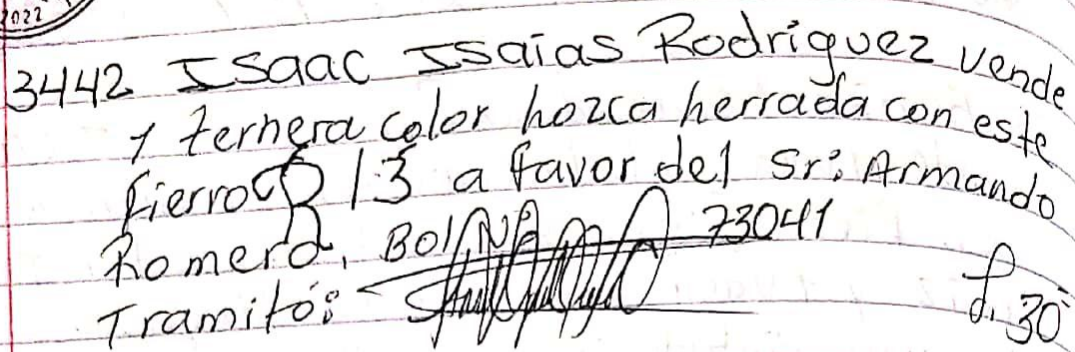 2022
3442 Isaac Isaias Rodriguez vende
1 ternera color hozca herrada con este
fierro 13 a favor del Sr: Armando
Romero. Bol/Nº 73041
Tramitó:
L. 30